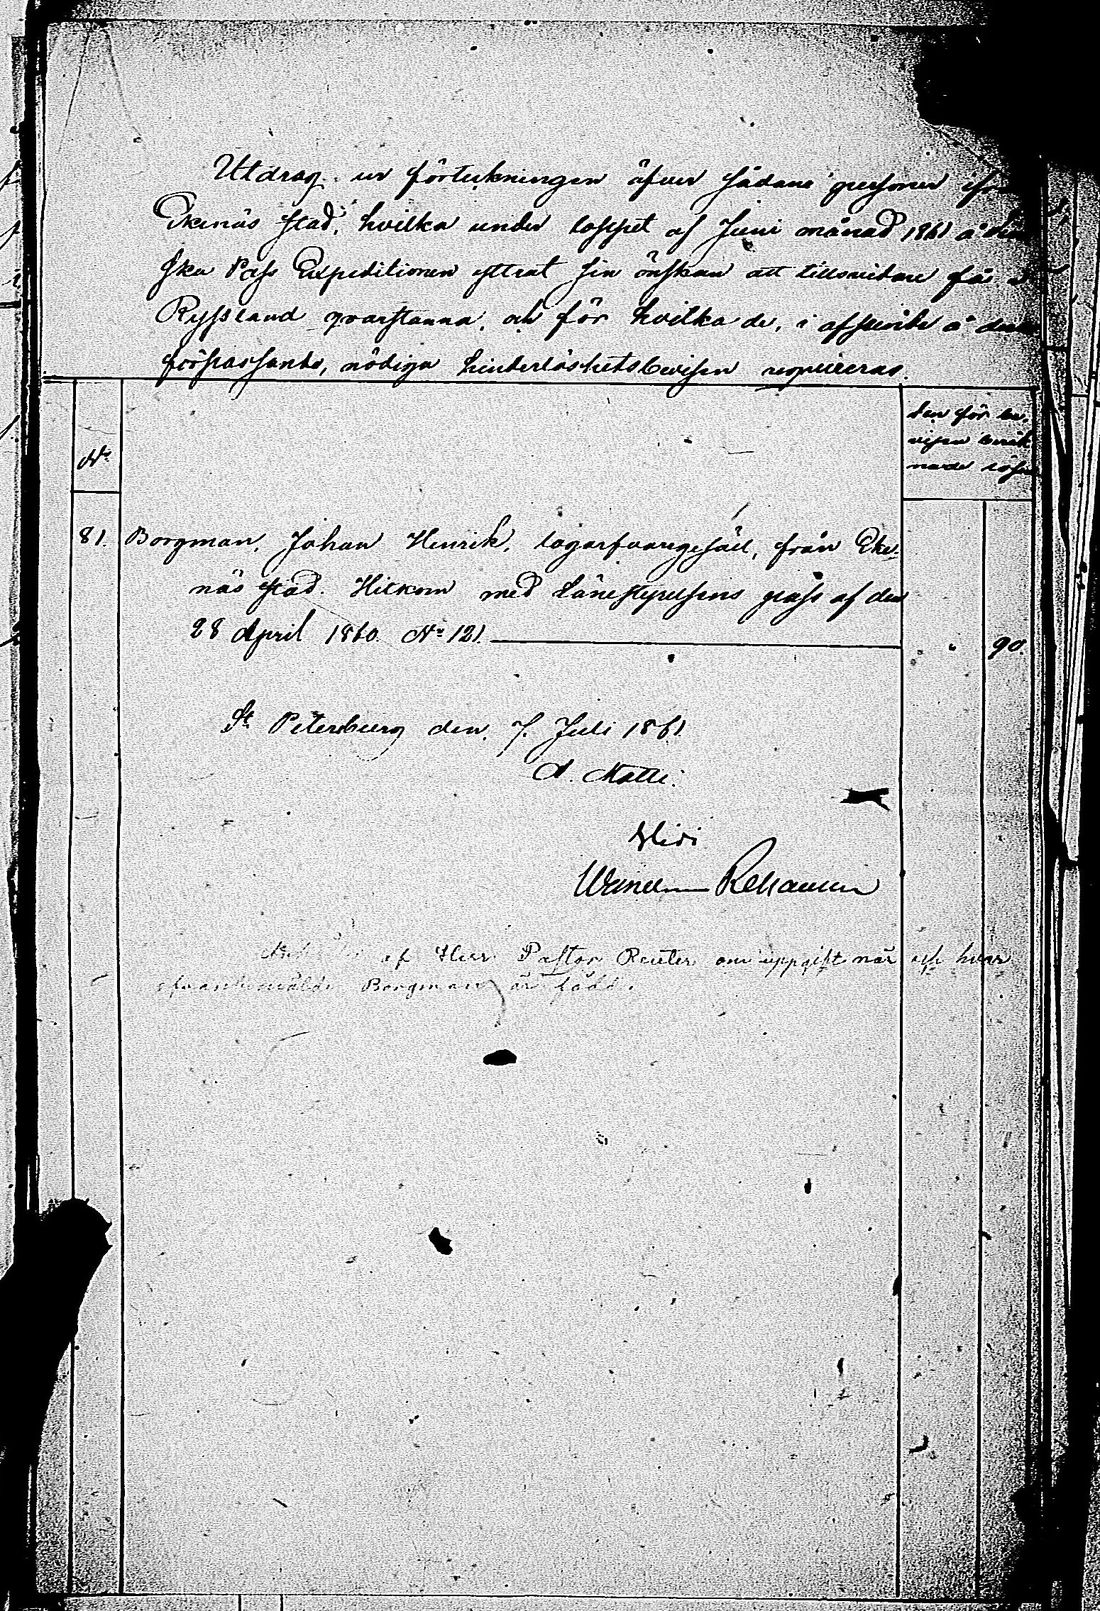 Utdrag ur förteckningen öfver sådane personer
Ekenäs stad, hvilka under loppet af Juni månad 1861 å
ska Pass Expeditionen yttrat sin önskan att tillsvidare få
Ryssland qvarstanna, och för hvilka de, i afseende å deras
förpassande, nödiga hinderlöshetsbevisen requireras.
den för be-
visen beräk-
nade lösen
No
81. Borgman, Johan Henrik, logarfvaregesäll, från Eke-
näs stad. Hitkom med Länestyrelsens pass af den
28 April 1860. No 121.
90.
St Petersburg den 7. Juli 1861.
A. Matti.
Vidi
af Herr Pastor Reuter om uppgift när och hvar
ofvananmälde Borgman är född.